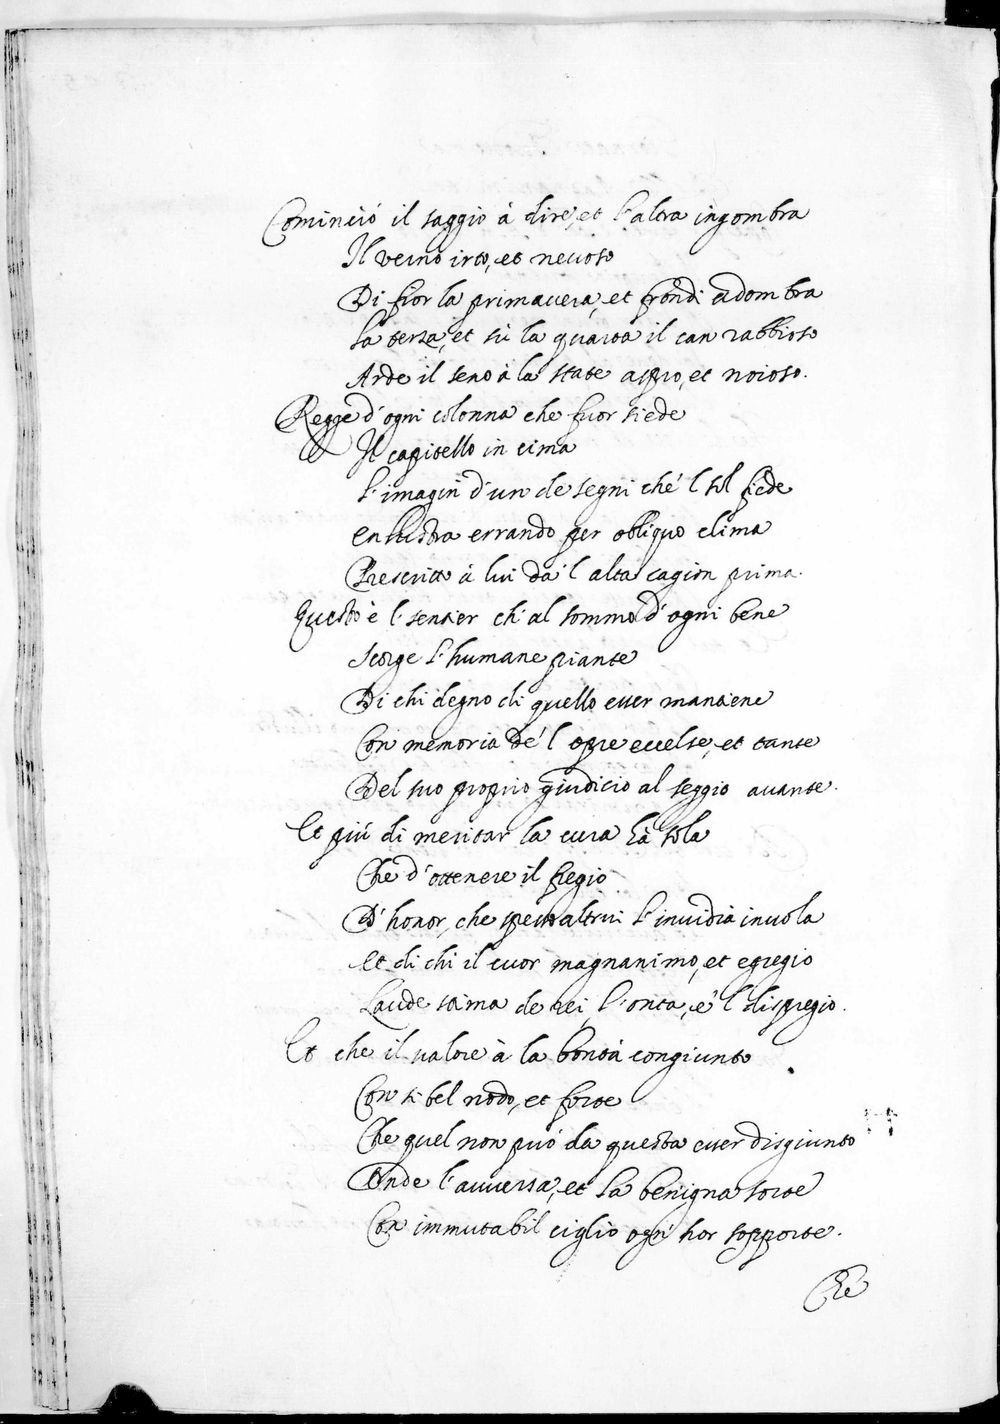 Cominciò il saggio à dire, et l'altra ingombra
Il verno irto, et neuoso
Di fior la primauera, et frondi adombra
La terza, et sù la quarta il can rabbioso
Arde il seno à la state aspro, et noioso.
Regge d'ogni colonna che fuor siede
Il capitello in cima
L'imagin d'un de segni ché'l sol fiede
En lustra errando per obliquo clima
Prescritto à lui da'l alta cagion prima.
Questo è l'sentier ch'al sommo d'ogni bene
Scorge l'humane piante
Di chi degno di quello esser mantiene
Con memoria de'l opre eccelse, et tante
Del suo proprio giudicio al seggio auante.
Et più di meritar la cura hà sola
Che d'ottenere il fregio
D'honor, che spesso altrui l'inuidia inuola
Et di chi il cuor magnanimo, et egregio
Laude stima de rei l'onta, e'l dispregio.
Et che il valore à la bontà congiunto
Con sì bel nodo, et forte
Che quel non può da questa esser disgiunto
Onde l'auuersa, et la benigna sorte
Con immutabil ciglio ogn'hor sopporte.
Ché